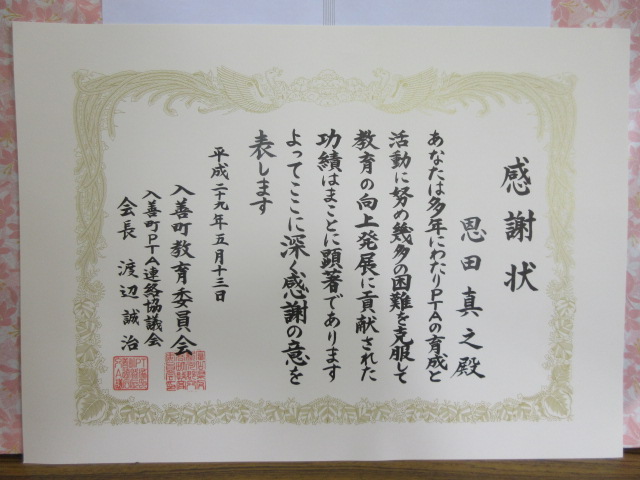 感謝状
恩田真之殿
あなたは多年にわたりPTAの育成と
活動に努め幾多の困難を克服して
教育の向上発展に貢献された
功績はまことに顕著であります
よってここに深く感謝の意を
表します
平成二十九年五月十三日
入善町教育委員会
入善町PTA連絡協議会
会長 渡辺誠治